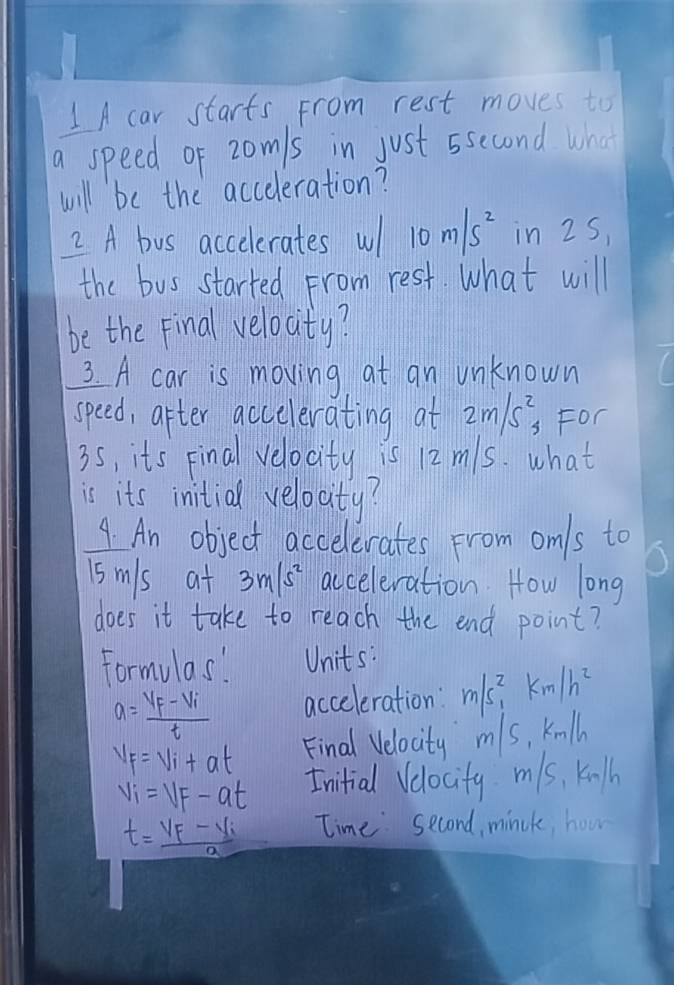 1 A car starts From rest moves to
a speed of 20m/s in just 5second. What
will be the acceleration?
2. A bus accelerates w/ 10 m/s² in 2s,
the bus started From rest. What will
be the Final velocity?
3. A car is moving at an unknown
speed, after accelerating at 2m/s², For
3s, its Final velocity is 12 m/s. what
is its initial velocity?
4. An object accelerates From 0m/s to
15 m/s at 3m/s² acceleration. How long
does it take to reach the end point?
Formulas: Units:
a = VF - Vi / t acceleration: m/s², Km/h²
VF = Vi + at Final Velocity: m/s, Km/h
Vi = VF - at Initial Velocity: m/s, Km/h
t = VF - Vi / a Time: second, minute, hour